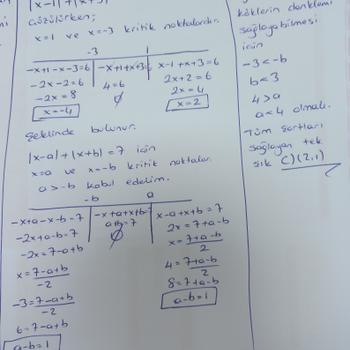 |x-1|+|x+3|
çözülürken;
x=1 ve x=-3 kritik noktalardır.
-3 1
-x+1-x-3=6 -x+1+x+3=6 x-1+x+3=6
-2x-2=6 4=6 2x+2=6
-2x=8 ∅ 2x=4
x=-4 x=2
şeklinde bulunur.
|x-a|+|x+b|=7 için
x=a ve x=-b kritik noktalar
a>-b kabul edelim.
-b a
-x+a-x-b=7 -x+a+x+b=7 x-a+x+b=7
-2x+a-b=7 a+b=7 2x=7+a-b
-2x=7-a+b ∅ x=7+a-b/2
x=7-a+b/-2 4=7+a-b/2
-3=7-a+b/-2 8=7+a-b
6=7-a+b a-b=1
a-b=1
köklerin denklemi
sağlayabilmesi
için
-3<-b
b<3
4>a
a<4 olmalı.
Tüm şartları
sağlayan tek
şık C)(2,1)